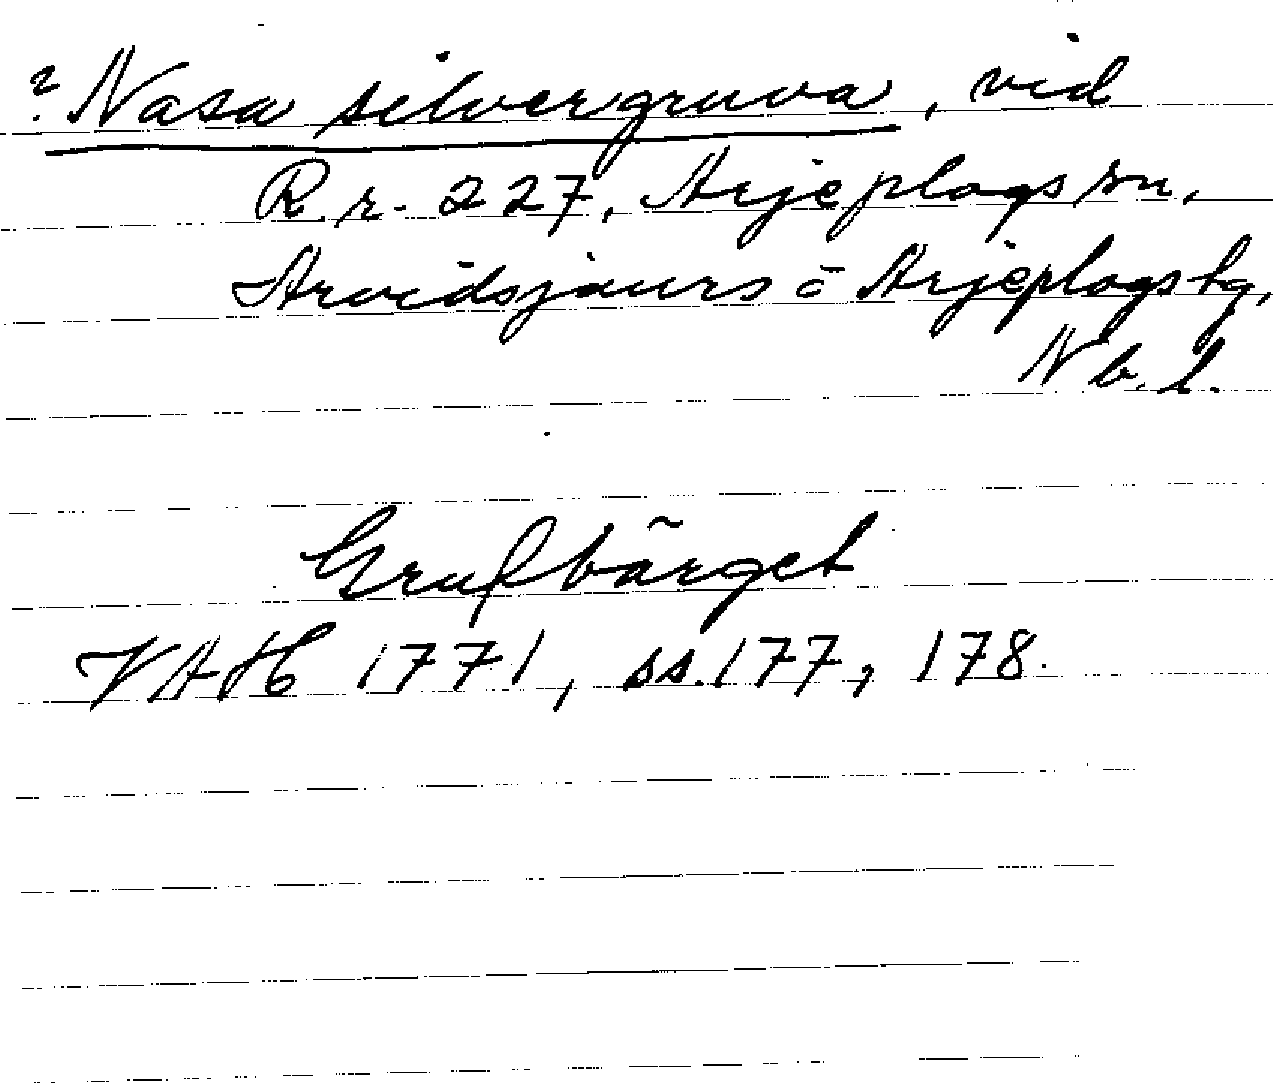 ? Nasa silvergruva, vid
R.r. 227, Arjeplogs sn,
Arvidsjaurs o Arjeplogs tg,
Nb. l.
Grufbärget
VAH 1771, ss. 177, 178.